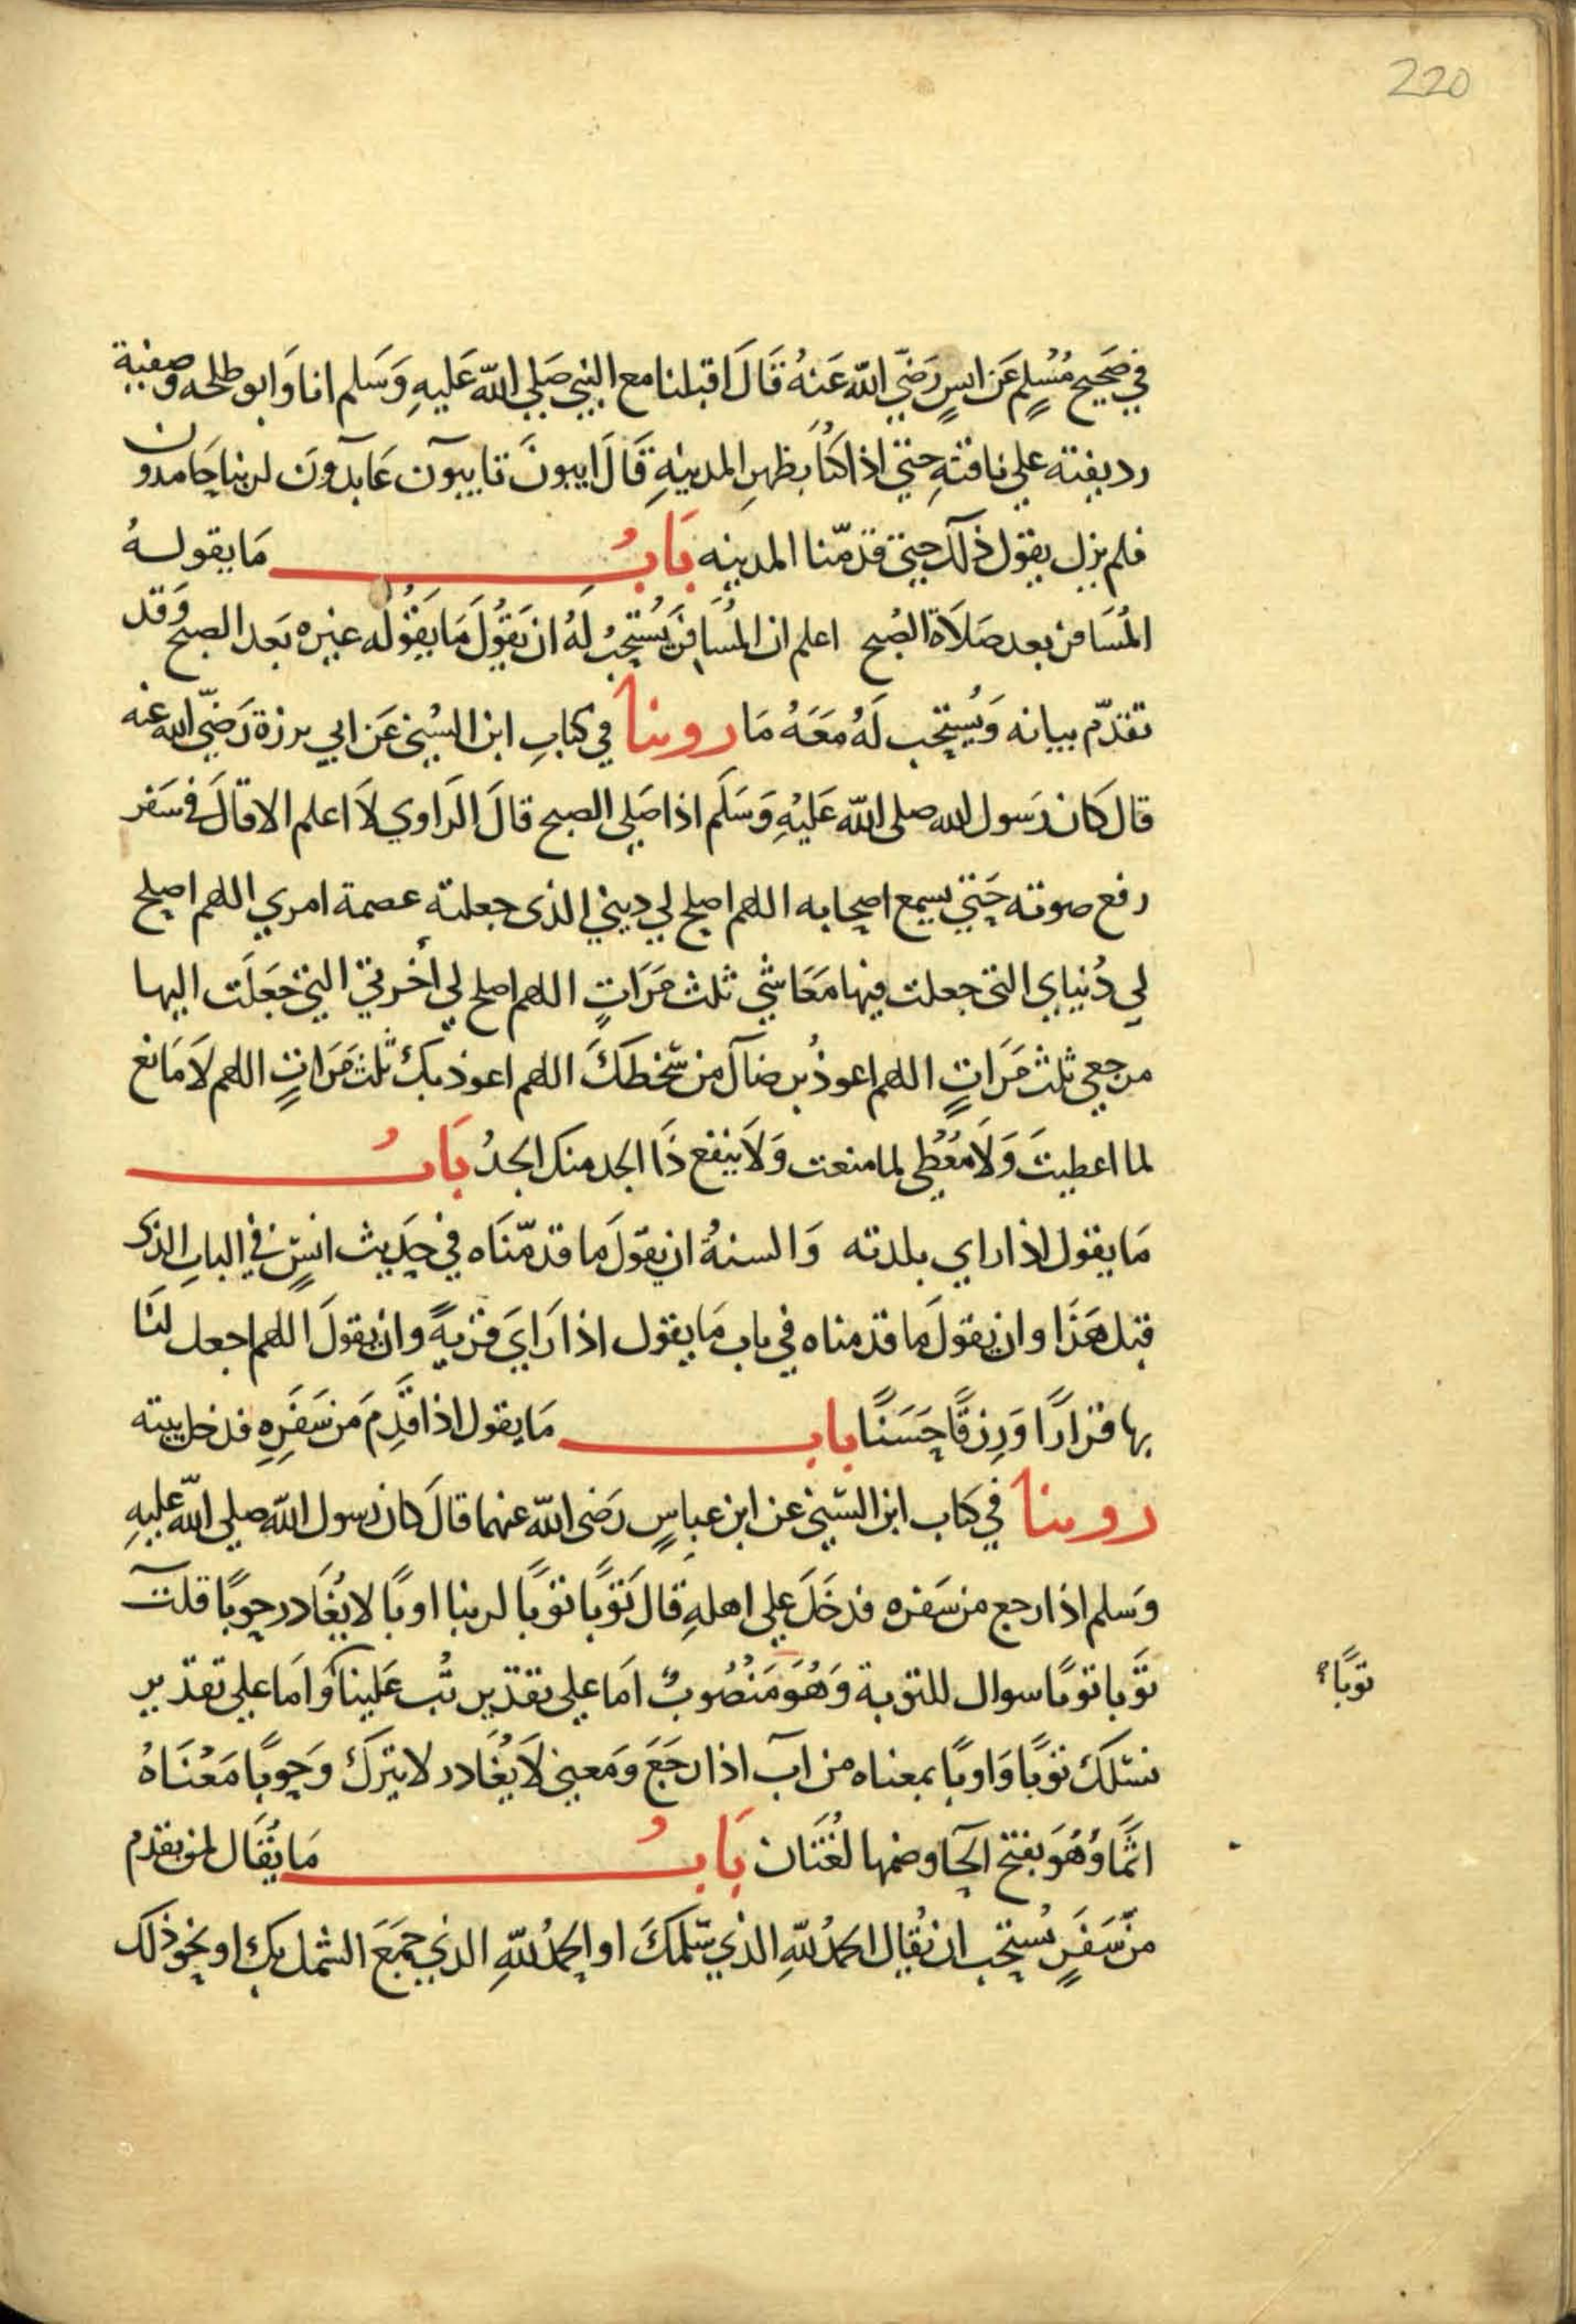 220
في صَحيح مُسْلِم عَن انسٍ رَضيَ الله عَنهُ قَالَ اقبلنا مع النبي صَلي الله عَليهِ وَسَلم انا وَابو طلحه وصفية
رديفته علي ناقتهِ حتي اذا كنّا بظهرِ المدينهِ قَالَ ايبونَ تايبون عَابدونَ لربنا حَامدون
فلم يزل يقول ذلك حتي قدمّنا المدينه بَابُ مَا يقولهُ
المُسَافر بعد صَلَاة الصُبح اعلم ان المُسَافرَ يُستحبُ لَهُ ان يَقُولَ مَا يَقُولُه غيره بَعد الصبح وَقد
تقدّم بيانه وَيُستحب لَهُ مَعَهُ مَا روينا في كتابِ ابن السُني عَن ابي برزة رَضيَ الله عنه
قال كَان رَسول الله صلى الله عَليْهِ وَسَلَم اذا صَلي الصبح قالَ الرَاوي لاَ اعلم الا قالَ في سَفر
رفع صوته حَتي يسمع اصحابه اللهم اصلح لي ديني الذى جعلته عصمة امري اللهم اصلح
لي دُنياي التى جعلت فيها مَعَاشي ثلث مَرَاتٍ اللهم اصلح لي اُخرتي التي جَعَلَت اليها
مرجعي ثلث مَرَاتٍ اللهم اعوذُ برضاك من سَخطكَ اللهم اعوذ بك ثلث مَرَاتٍ اللهم لاَ مَانع
لما اعطيتَ وَلاَ مُعُطِي لما منعت وَلاَ ينفع ذَا الجد منك الجدُ بَابُ
مَا يقول اذا راي بلدته وَالسنةُ ان يقولَ ما قدمّنَاه في حَديث انسٍ في البابِ الذى
قبل هَذَا وان يقولَ ما قدمناه في باب مَا يقول اذا رَايَ قريةً وان يقولَ اللهم اجعل لنَا
بها قرَارًا وَرِزقًا حَسَنًا باب مَا يقول اذا قَدِمَ مَن سَفَرِهِ فدخل بيته
روينا في كتاب ابن السّني عن ابن عباسٍ رَضى الله عنهما قالَ كان رسول الله صلي الله عليهِ
وَسلم اذا رجع من سَفره فدخَلَ علي اهلهِ قالَ تَوبًا توبًا لربنا اوبًا لا يُغَادر حوبًا قلت
تَوبا توبًا سوال للتوبة وَهُوَ مَنْصُوبٌ اَما علي تقدير تُب عَلينا وَاَما علي تقدير
نسئلك توبًا وَاوبًا بمعناه من آبَ اذا رجَعَ وَمَعني لاَ يُغَادر لا يترك وَحوبًا مَعْنَاهُ
اثمًا وَهُوَ بفتح الحَا وضمها لُغتَان بَابُ مَا يُقَال لمن يقدمُ
من سَفَرٍ يُستحب ان يُقال الحمدُ للهِ الذي سَلمكَ او الحمدُ للهِ الذي جمَعَ الشمل بك او نحو ذلك
توبًا